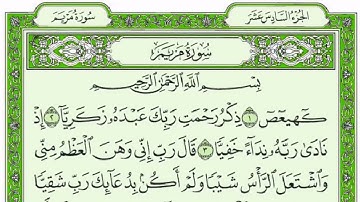 الجزء السادس عشر
سورة مريم
سُورَةُ مَرْيَمَ
بِسْمِ اللَّهِ الرَّحْمَٰنِ الرَّحِيمِ
كٓهيعٓصٓ ١ ذِكْرُ رَحْمَتِ رَبِّكَ عَبْدَهُۥ زَكَرِيَّآ ٢ إِذْ
نَادَىٰ رَبَّهُۥ نِدَآءً خَفِيًّا ٣ قَالَ رَبِّ إِنِّى وَهَنَ ٱلْعَظْمُ مِنِّى
وَٱشْتَعَلَ ٱلرَّأْسُ شَيْبًا وَلَمْ أَكُنۢ بِدُعَآئِكَ رَبِّ شَقِيًّا